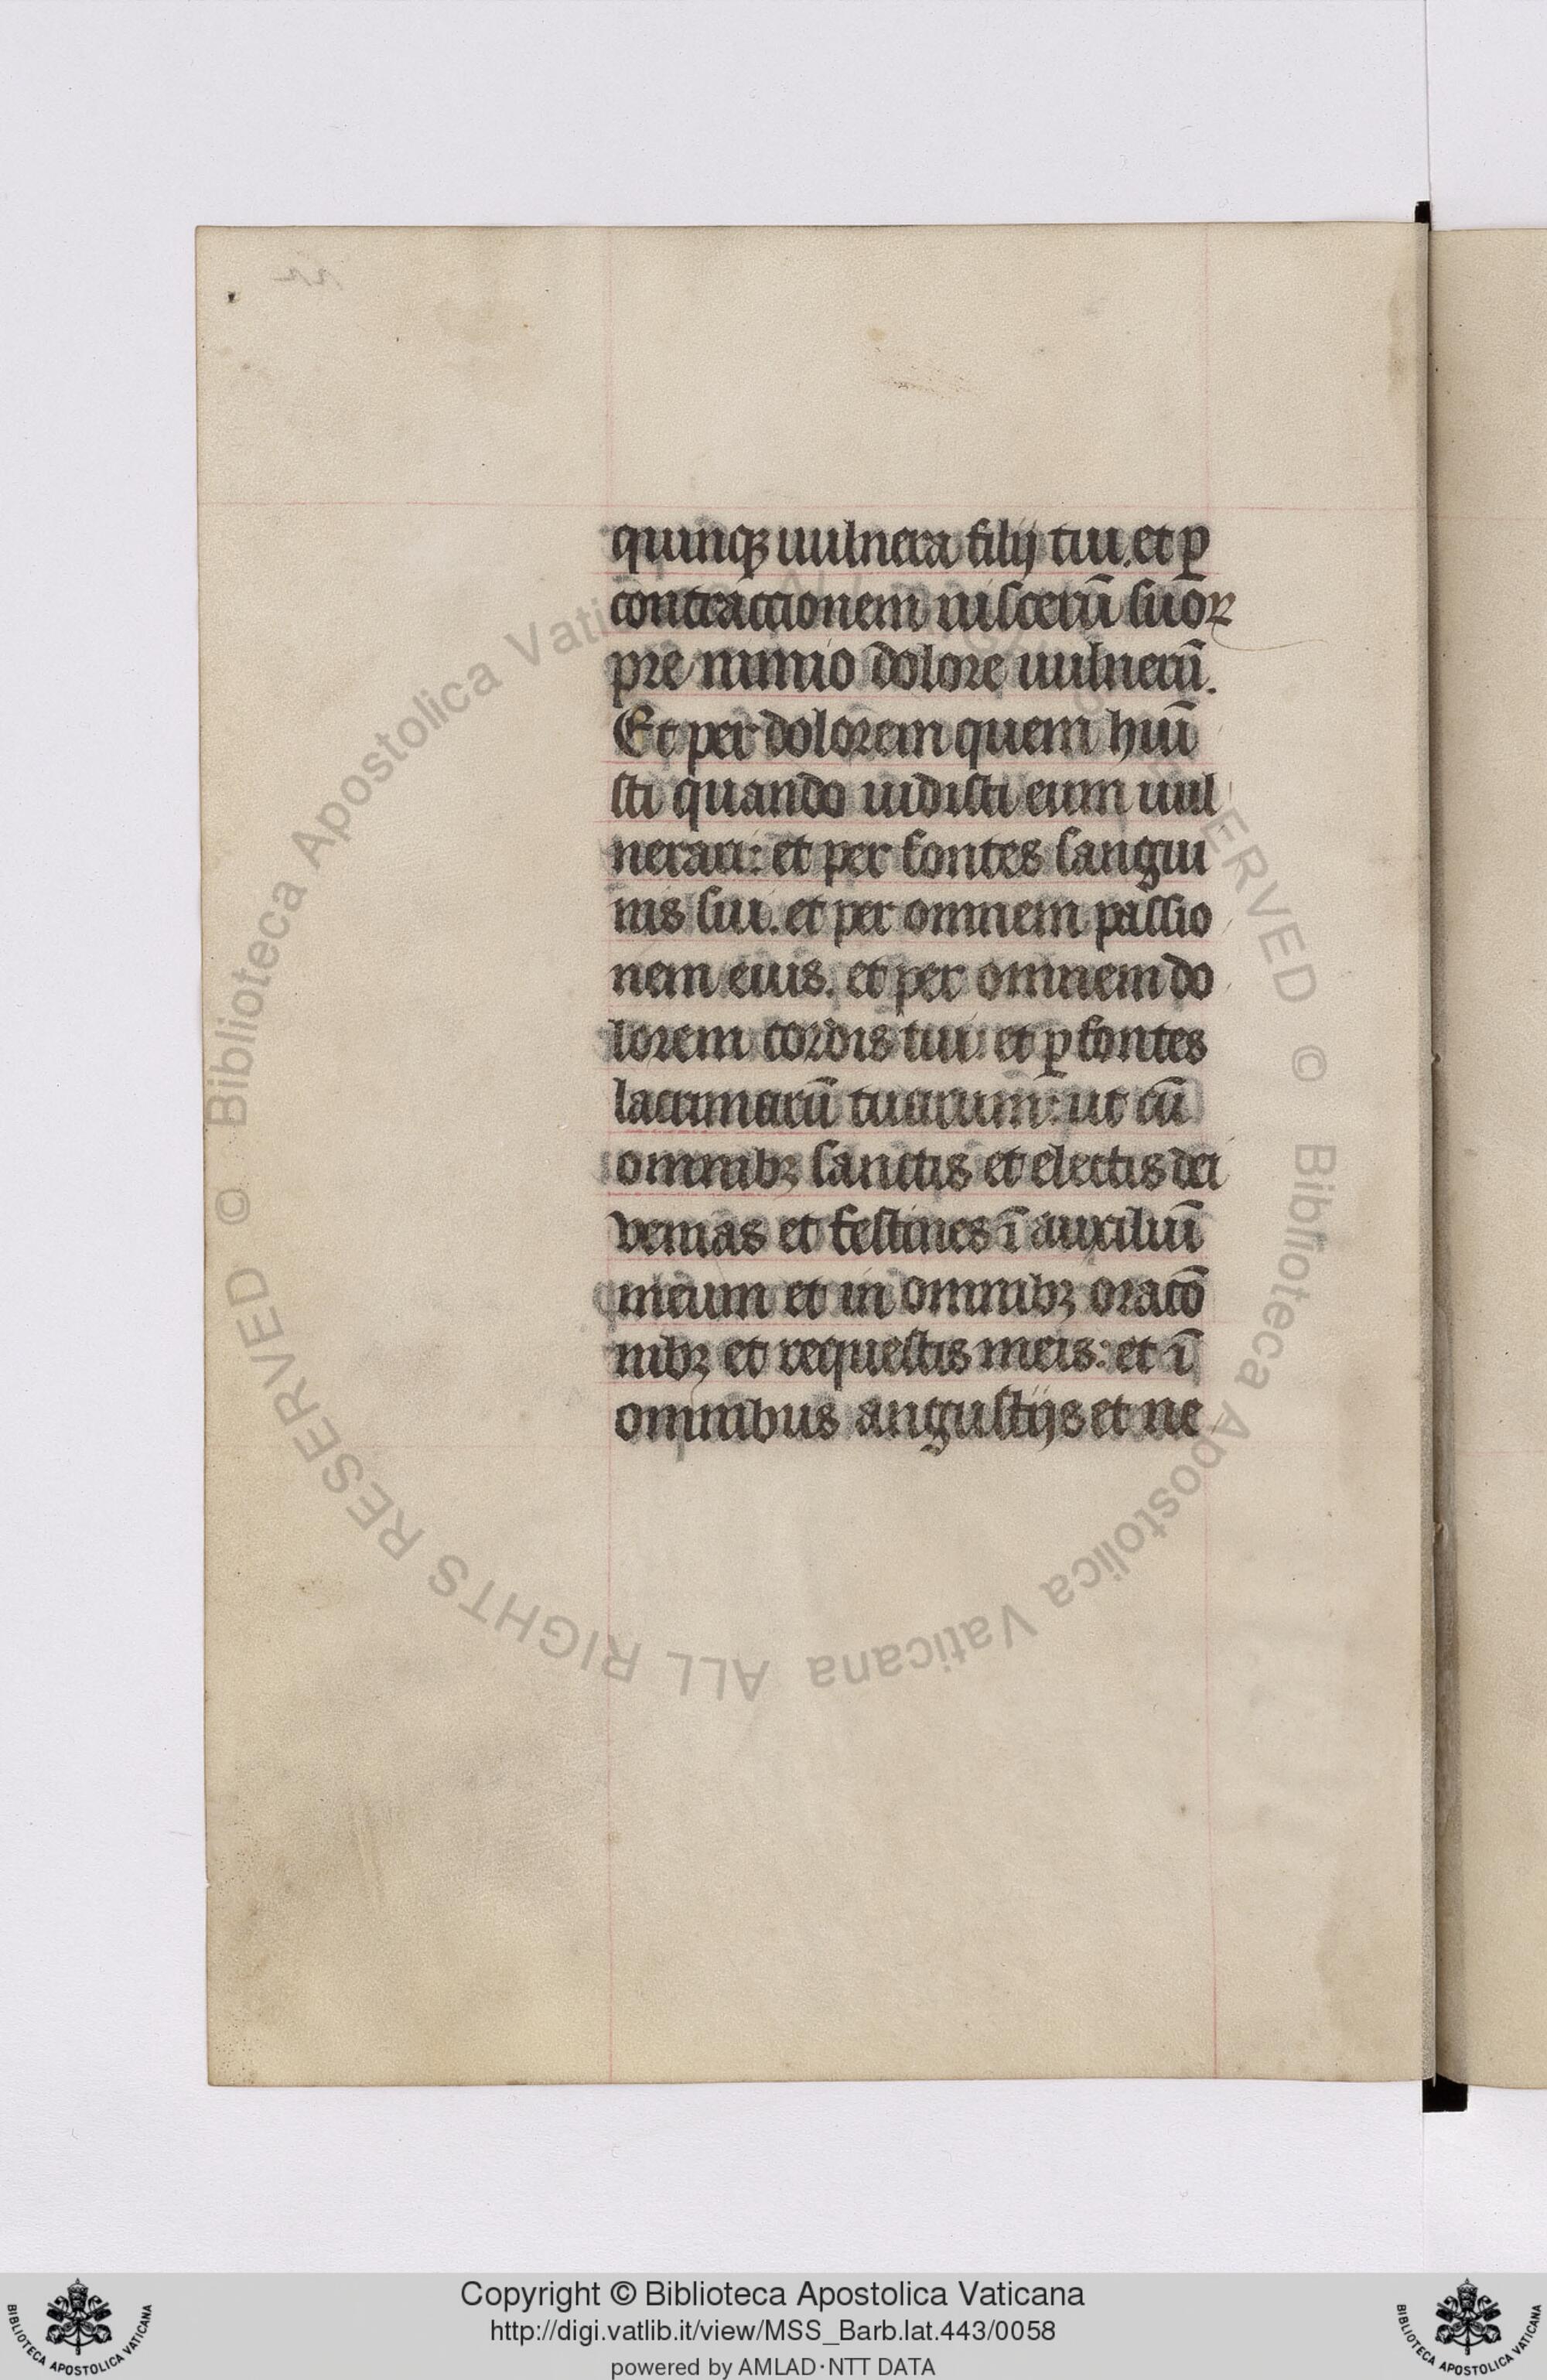 quinqꝫ uulnera filij tui. et ꝑ
contractionem uiscerū suoꝝ
pre nimio dolore uulnerū.
Et per dolorem quem huī
sti quando uidisti eum uul
nerari: et per fontes sangui
nis sui. et per omnem passio
nem eius. et per omnem do
lorem cordis tui: et ꝑ fontes
lacrimarū tuarum: ut cū
omnibꝫ sanctis et electis dei
venias et festines ī auxiliū
meum et in omnibꝫ oracō
nibꝫ et requestis meis: et ī
omnibus angustijs et ne
© Biblioteca Apostolica Vaticana ALL RIGHTS RESERVED © Biblioteca Apostolica Vaticana ALL RIGHTS RESERVED
Copyright © Biblioteca Apostolica Vaticana
http://digi.vatlib.it/view/MSS_Barb.lat.443/0058
powered by AMLAD·NTT DATA
BIBLIOTECA APOSTOLICA VATICANA
BIBLIOTECA APOSTOLICA VATICANA